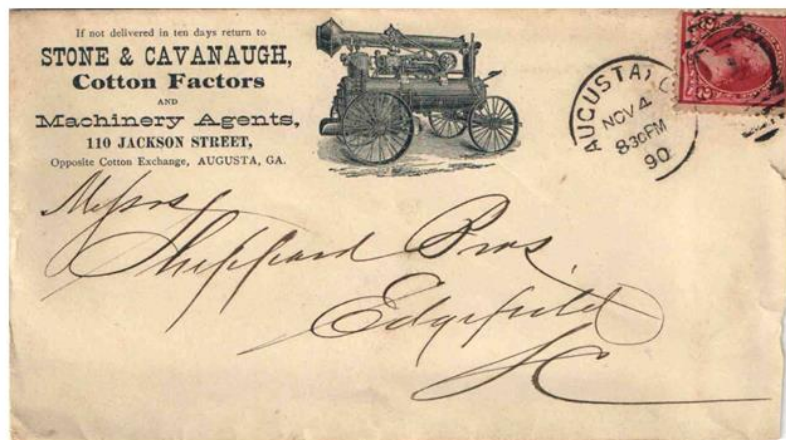 If not delivered in ten days return to
STONE & CAVANAUGH,
Cotton Factors
AND
Machinery Agents,
110 JACKSON STREET,
Opposite Cotton Exchange, AUGUSTA, GA.
AUGUSTA, G
NOV 4
830PM
90
2 2
Messrs
Sheppard Bros.
Edgefield
SC